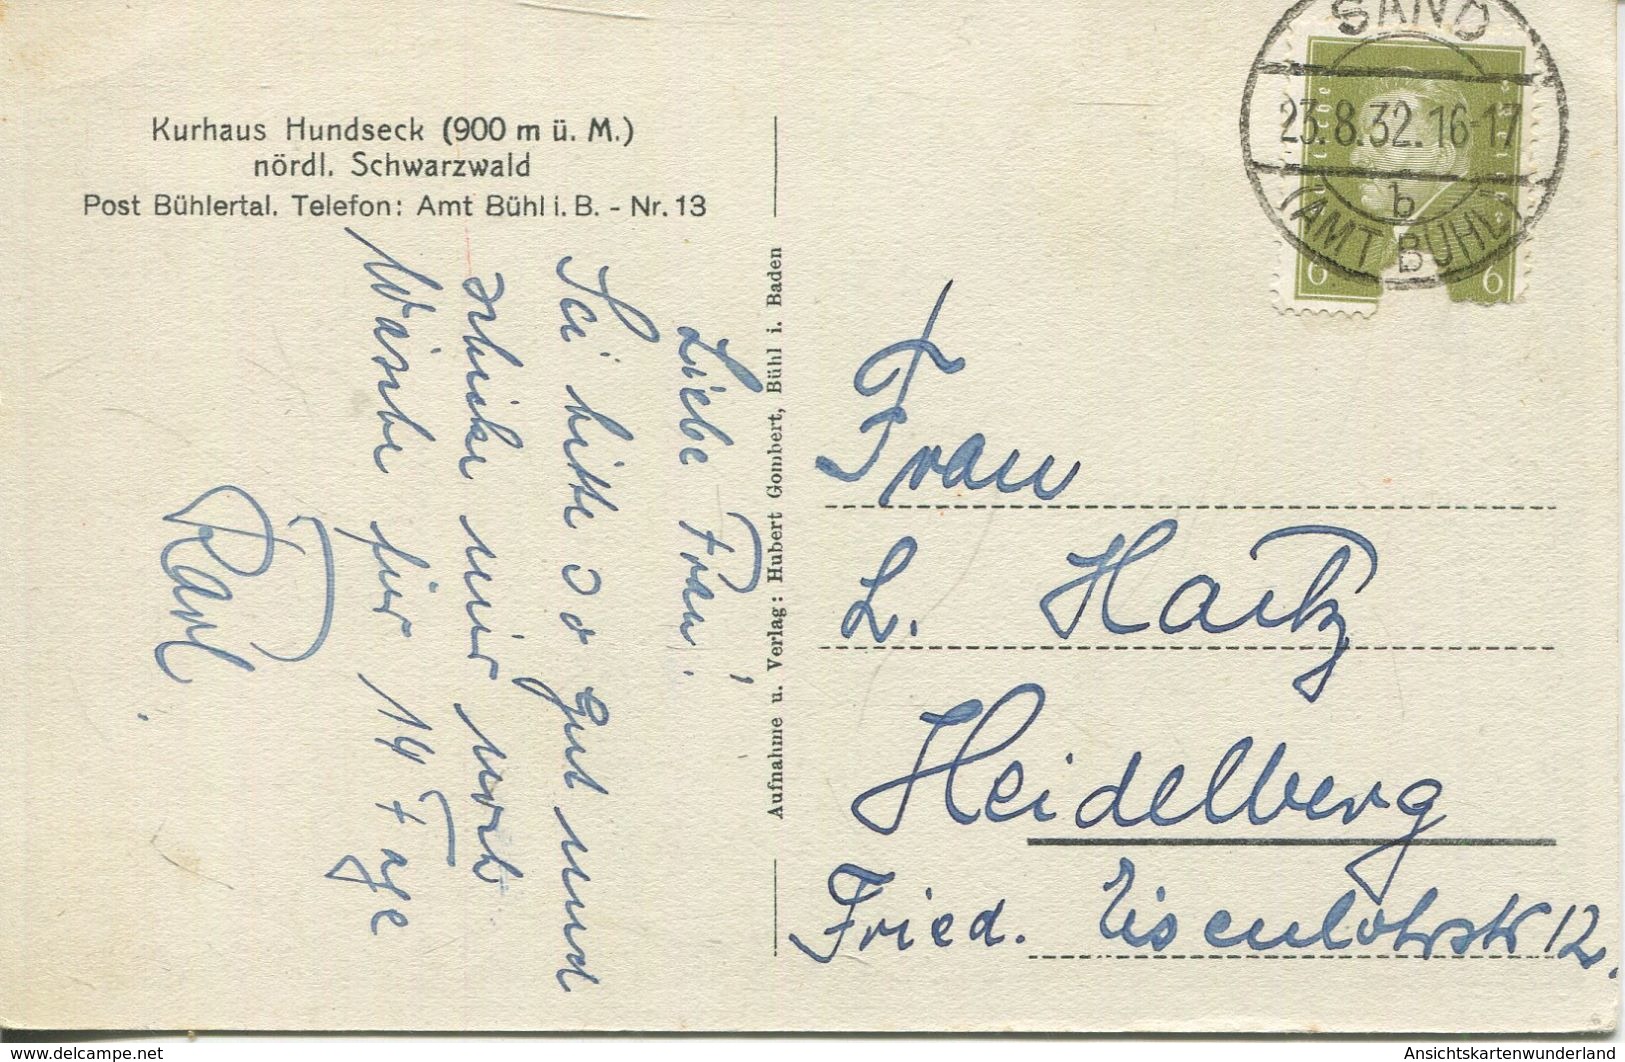 Kurhaus Hundseck (900 m ü. M.)
nördl. Schwarzwald
Post Bühlertal. Telefon: Amt Bühl i. B. - Nr. 13
Liebe Frau!
Sei bitte so gut und
schicke mir noch
Wäsche für 14 Tage
Karl.
Aufnahme u. Verlag: Hubert Gombert, Bühl i. Baden
SAND
23.8.32.16-17
b
(AMT BÜHL)
6 6
Frau
L. Haitz
Heidelberg
Fried. Eisenlohrstr 12.
www.delcampe.net
Ansichtskartenwunderland